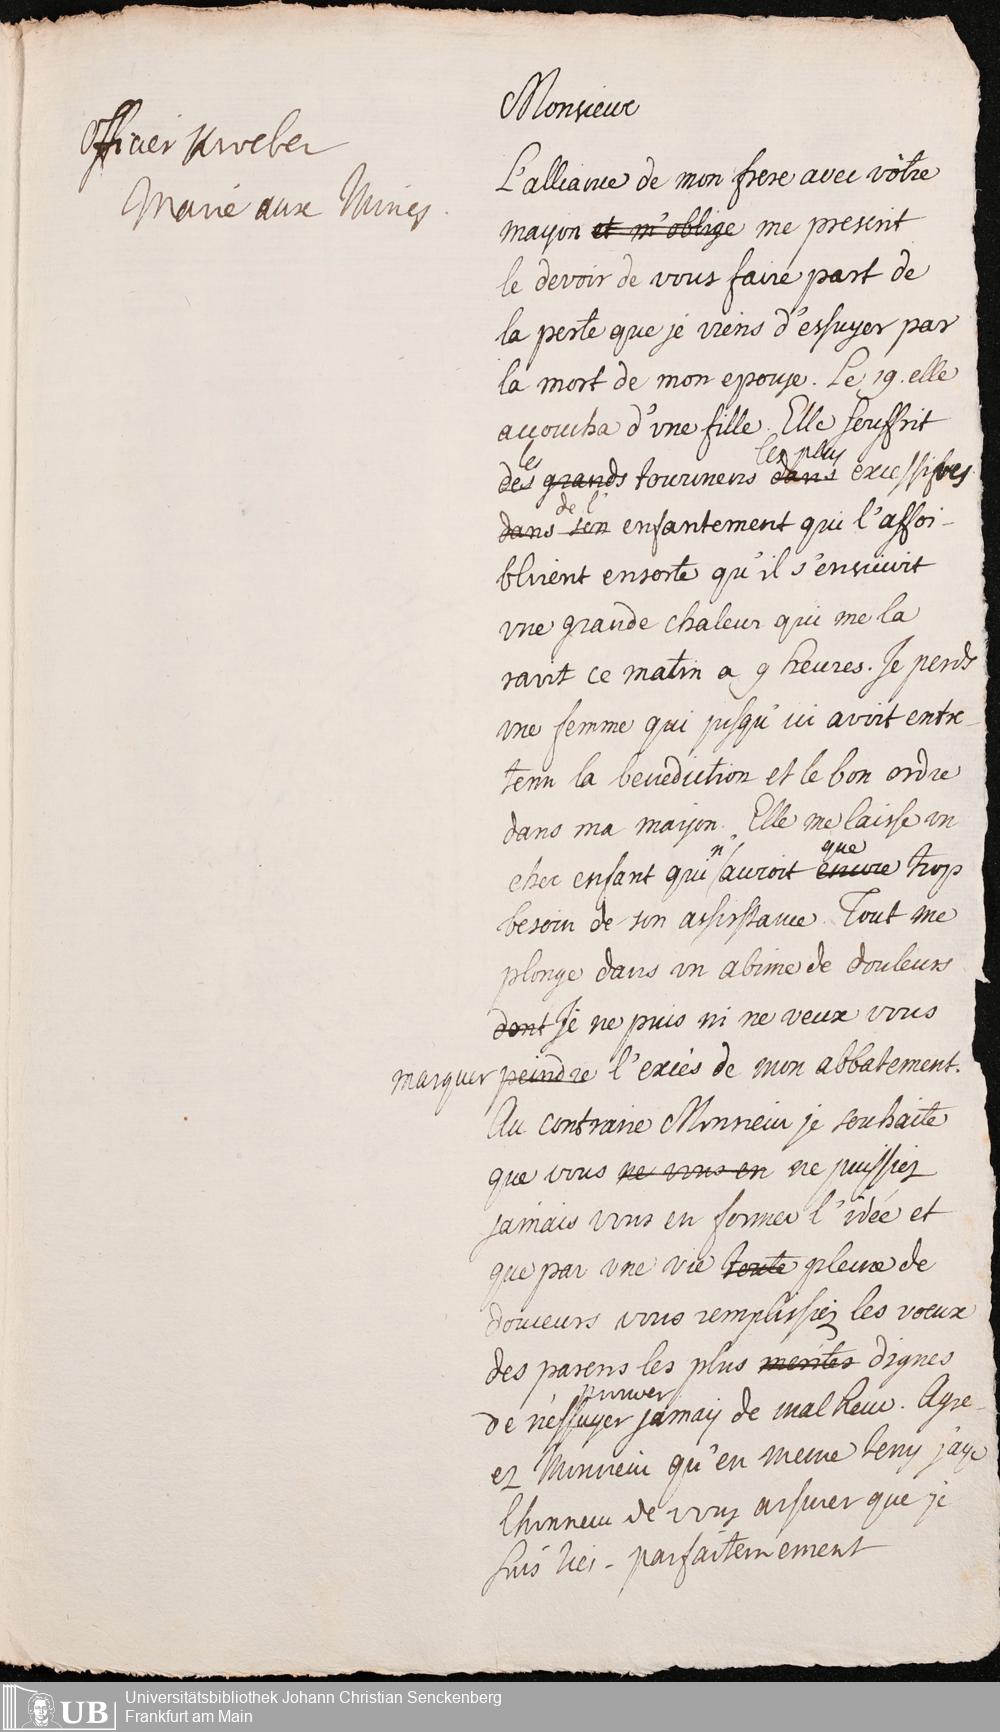 Officier Kroeber
Marie aux Mines.
Monsieur
L'alliance de mon frere avec vôtre
maison et m'oblige me prescrit
le devoir de vous faire part de
la perte que je viens d'essuyer par
la mort de mon epouse. Le 19. elle
accoucha d'une fille. Elle souffrit
les les plus
des grands tourmens dans excessifves
de l'
dans son enfantement qui l'affoi-
blirent ensorte qu'il s'ensuivit
une grande chaleur qui me la
ravit ce matin a 9 heures. Je perds
une femme qui jusqu'ici avoit entre-
tenu la benediction et le bon ordre
dans ma maison. Elle me laisse un
n' que
cher enfant qui auroit encore trop
besoin de son assistance. Tout me
plonge dans un abime de douleurs
dont Je ne puis ni ne veux vous
marquer peindre l'excès de mon abbatement.
Au contraire Monsieur je souhaite
que vous ne vous en ne puissiez
jamais vous en former l'idée et
que par une vie toute pleine de
douceurs vous remplissiez les voeux
des parens les plus merités dignes
prouver
de n'essuyer jamais de malheur. Agre-
ez Monsieur qu'en meme tems j'aye
l'honneur de vous assurer que je
suis tres-parfaitemement
Universitätsbibliothek Johann Christian Senckenberg
Frankfurt am Main
UB